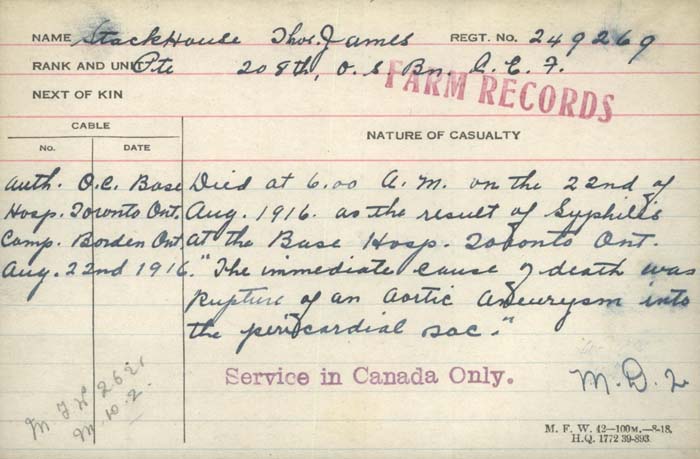 NAME Stackhouse Thos. James REGT. No. 249269
RANK AND UNIT Pte 208th, O.S. Bn. C.E.F.
FARM RECORDS
NEXT OF KIN
CABLE
NATURE OF CASUALTY
No. DATE
Auth. O.C. Base Died at 6.00 A.M. on the 22nd of
Hosp. Toronto Ont. Aug. 1916. as the result of Syphilis
Camp. Borden Ont. at the Base Hosp. Toronto Ont.
Aug. 22nd 1916. "The immediate cause of death was
Rupture of an Aortic Aneurysm into
the pericardial sac."
Service in Canada Only.
M.D. 2
M. F. W. 42—100M.—8-18.
H.Q. 1772 39-893.